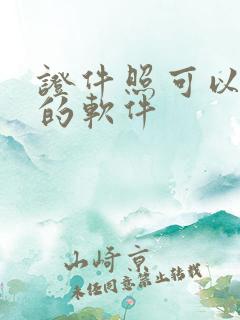 證件照可以
的軟件
山崎京
未任同意禁止转载